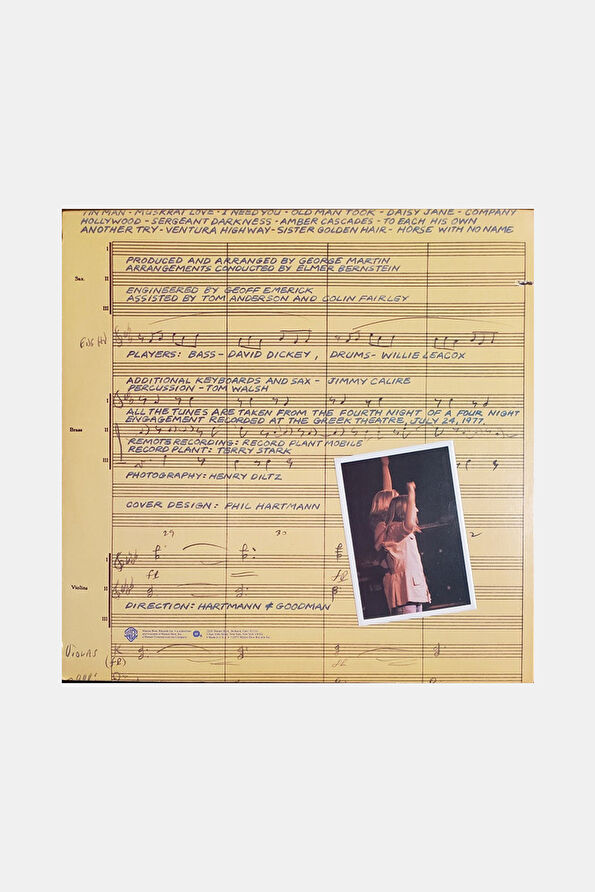 TIN MAN - MUSKRAT LOVE - I NEED YOU - OLD MAN TOOK - DAISY JANE - COMPANY
HOLLYWOOD - SERGEANT DARKNESS - AMBER CASCADES - TO EACH HIS OWN
ANOTHER TRY - VENTURA HIGHWAY - SISTER GOLDEN HAIR - HORSE WITH NO NAME
I
PRODUCED AND ARRANGED BY GEORGE MARTIN
ARRANGEMENTS CONDUCTED BY ELMER BERNSTEIN
Sax. II
ENGINEERED BY GEOFF EMERICK
ASSISTED BY TOM ANDERSON AND COLIN FAIRLEY
III
ENG HN
PLAYERS: BASS - DAVID DICKEY, DRUMS - WILLIE LEACOX
ADDITIONAL KEYBOARDS AND SAX - JIMMY CALIRE
PERCUSSION - TOM WALSH
I
ALL THE TUNES ARE TAKEN FROM THE FOURTH NIGHT OF A FOUR NIGHT
ENGAGEMENT RECORDED AT THE GREEK THEATRE, JULY 24, 1977.
Brass II
REMOTE RECORDING: RECORD PLANT MOBILE
RECORD PLANT: TERRY STARK
III
PHOTOGRAPHY: HENRY DILTZ
COVER DESIGN: PHIL HARTMANN
29 30 2
I
ff ff
Violins II
DIRECTION: HARTMANN & GOODMAN
III
VIOLAS
ff